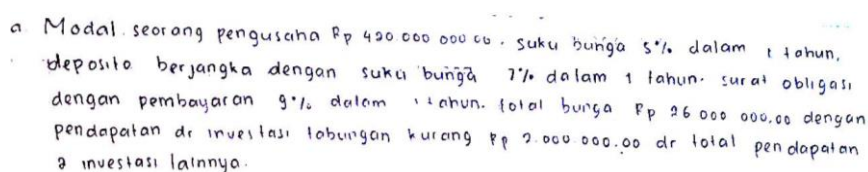 a Modal seorang pengusaha Rp 420.000 000 00. suku bunga 5% dalam 1 tahun,
deposito berjangka dengan suku bunga 7% dalam 1 tahun. surat obligasi
dengan pembayaran 9% dalam 1 tahun. total bunga Rp 26 000 000,00 dengan
pendapatan dr investasi tabungan kurang Rp 2.000 000,00 dr total pendapatan
2 investasi lainnya.